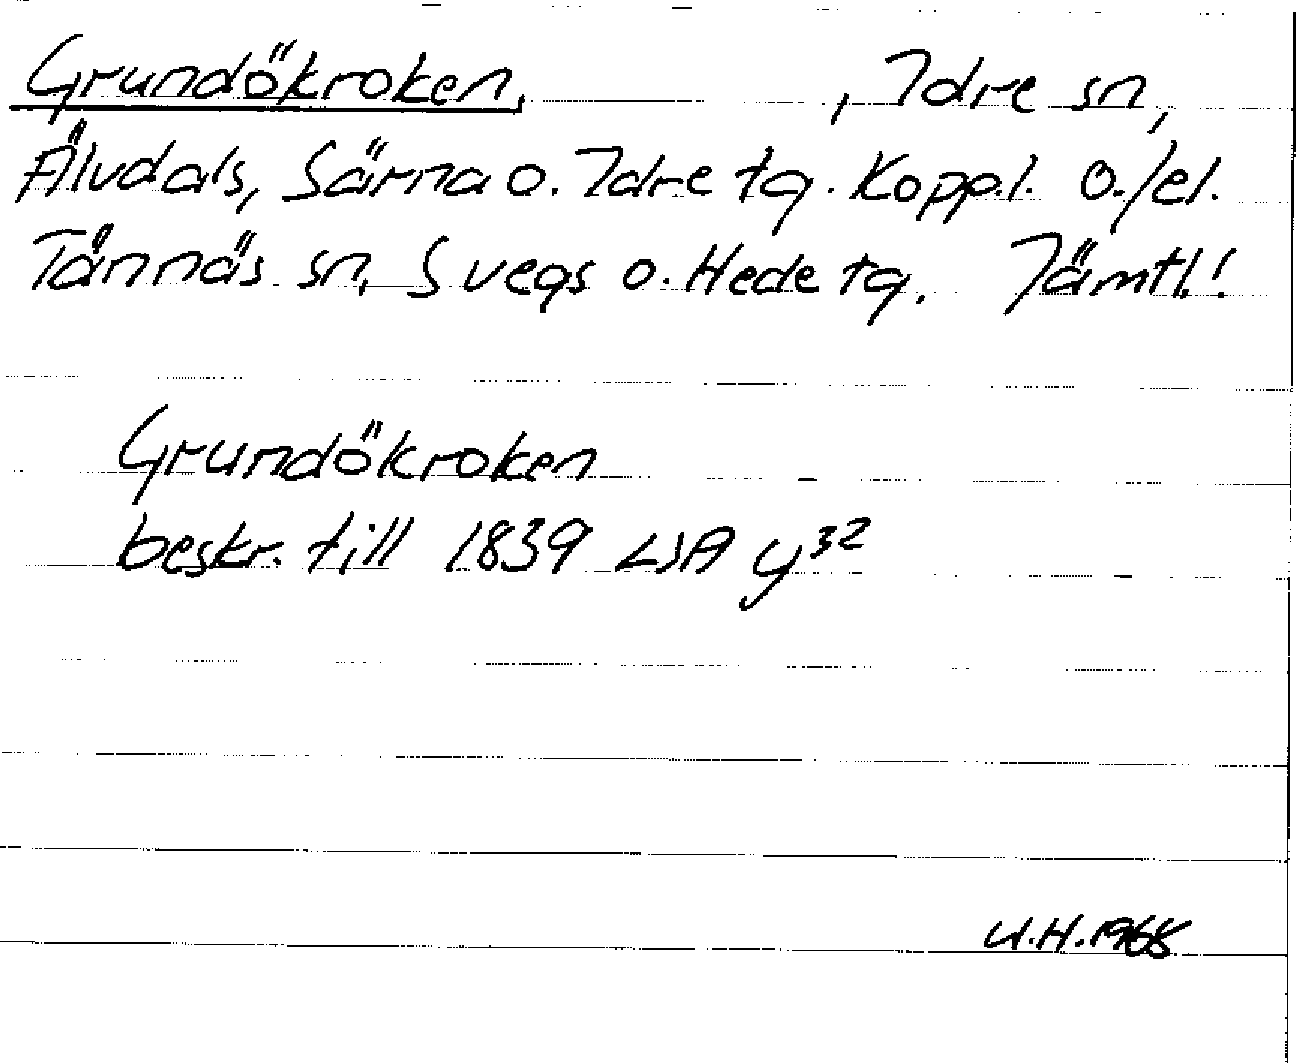 Grundökroken, , Idre sn,
Älvdals, Särna o. Idre tg. Koppl. o./el.
Tännäs sn, Svegs o. Hede tg. Jämtl.!
Grundökroken
beskr. till 1839 LSA y32
U.H. 1968